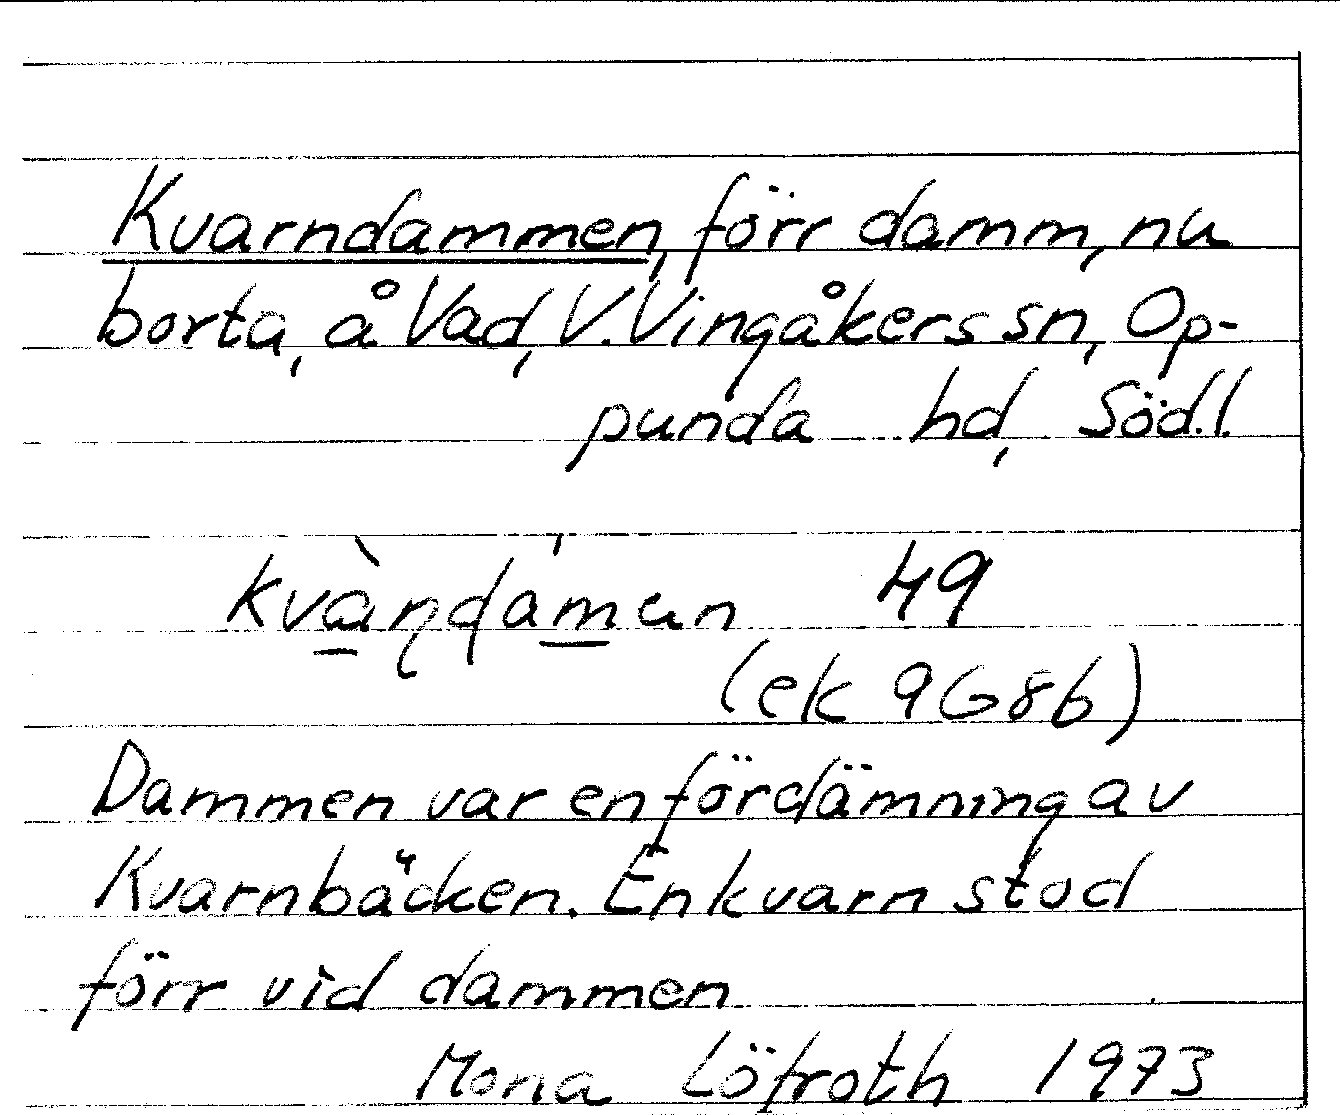 Kvarndammen, förr damm, nu
borta, å Vad, V. Vingåkers sn, Op-
punda hd, Södl.
kvàṇḍa'mən 49
(ek 9G8b)
Dammen var en fördämning av
Kvarnbäcken. En kvarn stod
förr vid dammen
Mona Löfroth 1973